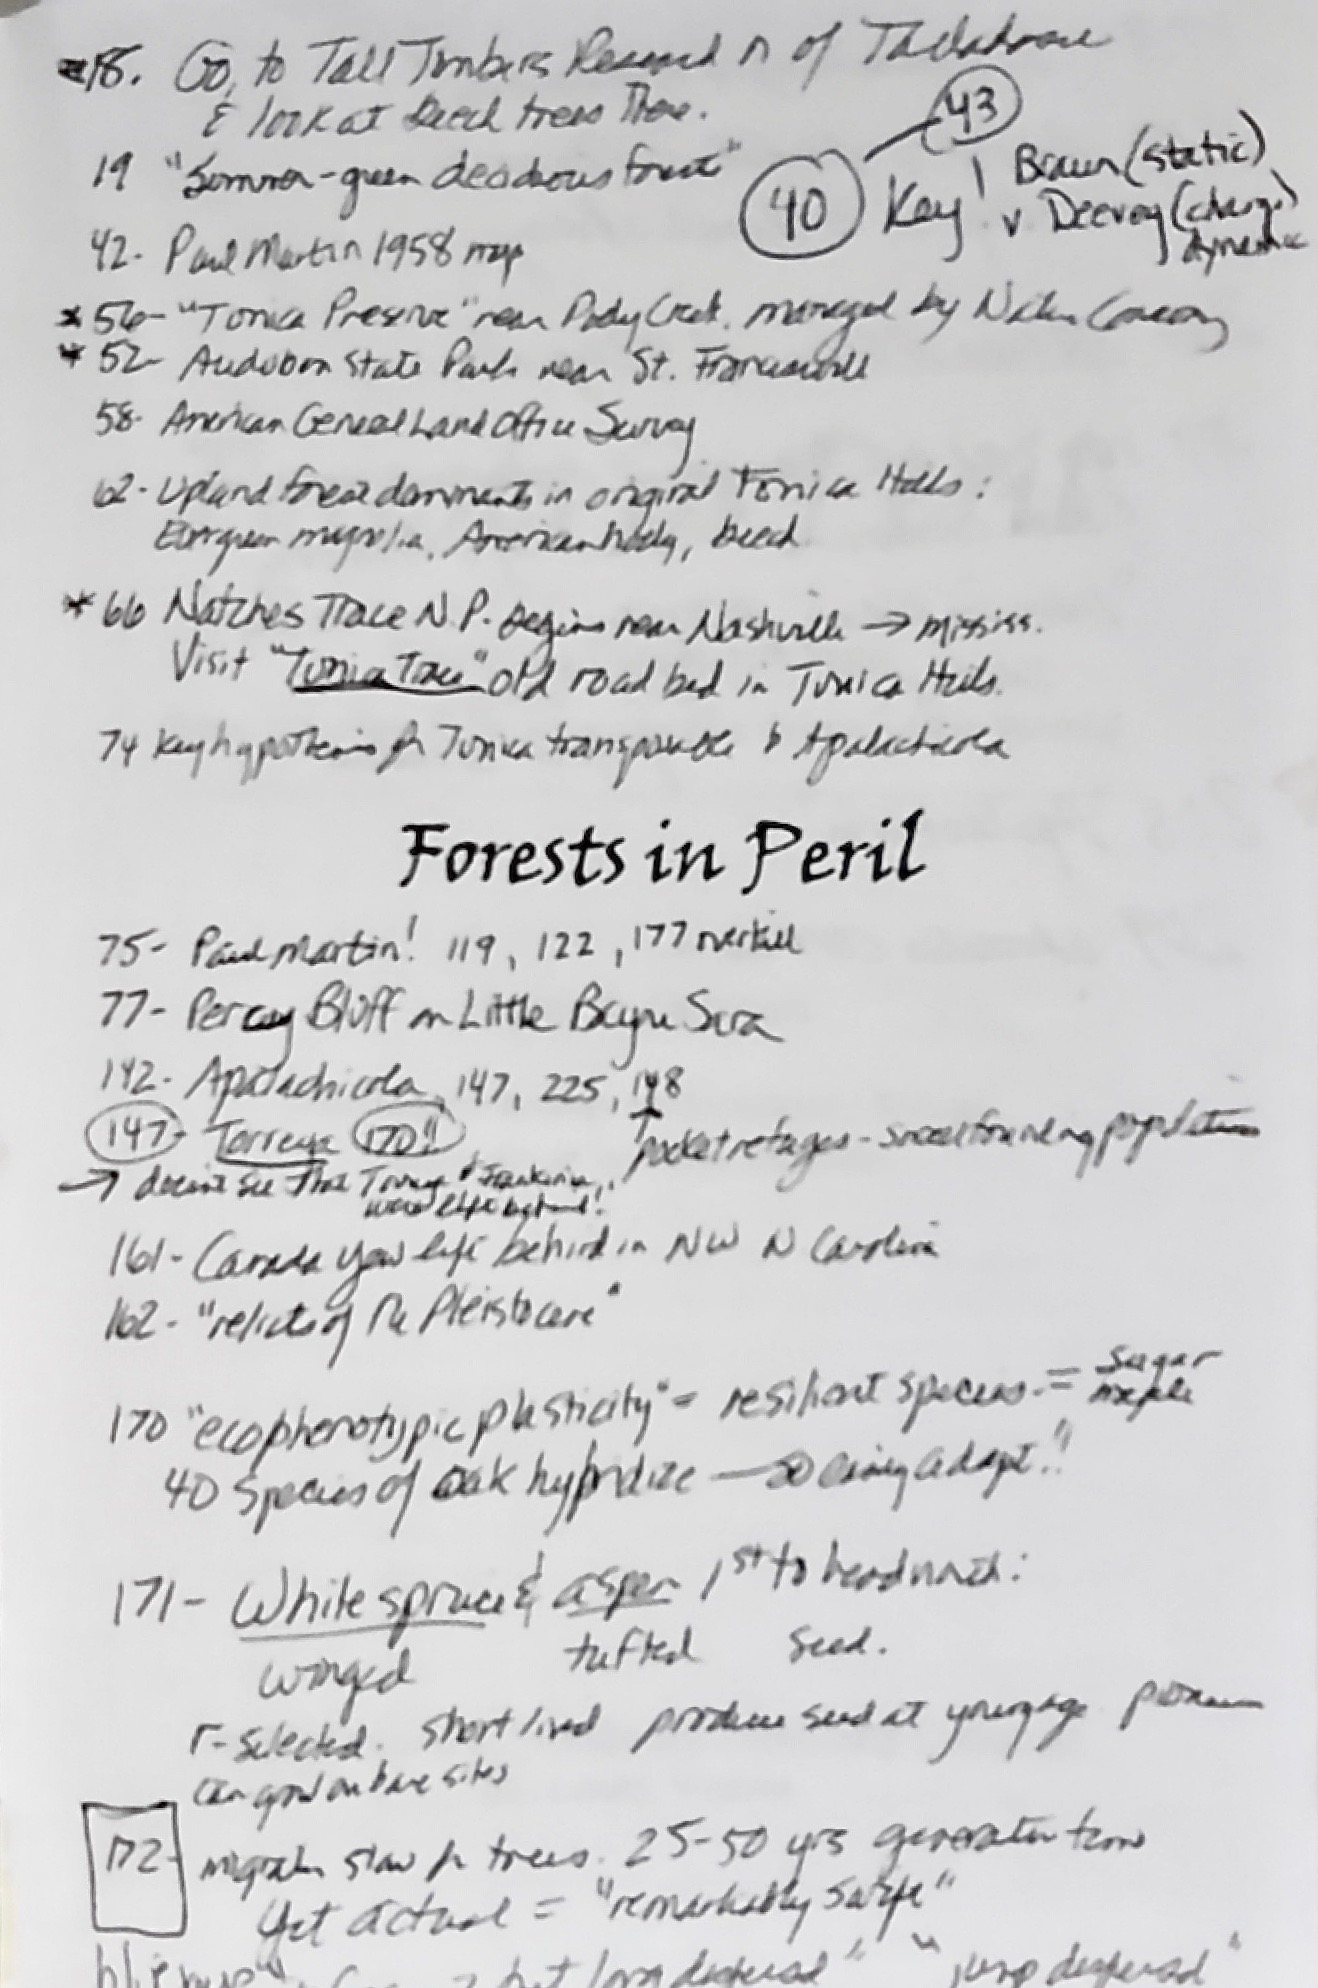 *18. Go to Tall Timbers Research n of Tallahassee
& look at beech trees there.
43
19 "Summer-green deciduous forest"
40 Key! Braun (static)
v Delcourt (change) dynamic
42- Paul Martin 1958 map
*56- "Tunica Preserve" near Creek. managed by Nature Conservancy
*52- Audubon State Park near St. Francisville
58- American General Land Office Survey
62- Upland forest dominants in original Tunica Hills:
Evergreen magnolia, American holly, beech
*66 Natches Trace N.P. begins near Nashville → mississ.
Visit "Tunica Trace" old road bed in Tunica Hills.
74 Key hypothesis for Tunica transposable to Apalachicola
Forests in Peril
75- Paul Martin! 119, 122, 177 overkill
77- Percy Bluff on Little Bayou Sara
142- Apalachicola, 147, 225, 148
↑
147- Torreya 170!! pocket refuges - small founding populations
→ doesn't see that Torreya & Franklinia
were left behind!
161- Canada yew left behind in NW N Carolina
162- "relicts of the Pleistocene"
170 "ecophenotypic plasticity" = resilient species. = Sugar maple
40 species of oak hybridize → so easily adapt!!
171- White spruce & aspen 1st to head north:
winged tufted seed.
r-selected. short lived produce seed at young age pioneers
can grow on bare sites
172- migration slow for trees. 25-50 yrs generation time
Yet actual = "remarkably swift"
but long dispersal" "jump dispersal"